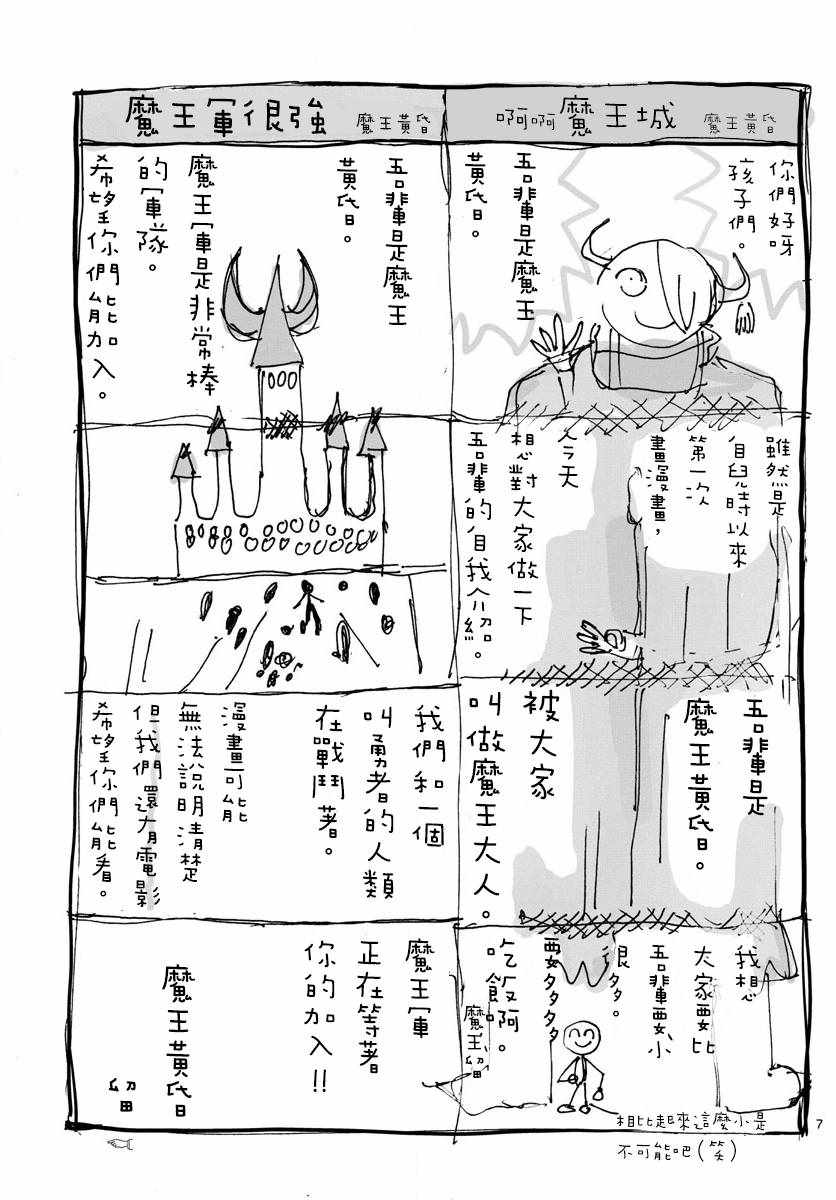 啊啊魔王城 魔王黃昏
你們好呀
孩子們。
吾輩是魔王
黃昏。
雖然是
自兒時以來
第一次
畫漫畫,
今天
想對大家做一下
吾輩的自我介紹。
吾輩是
魔王黃昏。
被大家
叫做魔王大人。
我想
大家要比
吾輩要小
很多。
要多多多
吃飯啊。
魔王、留
相比起來這麼小是
不可能吧(笑)
魔王軍很強 魔王黃昏
吾輩是魔王
黃昏。
魔王軍是非常棒
的軍隊。
希望你們能加入。
我們和一個
叫勇者的人類
在戰鬥著。
漫畫可能
無法說明清楚
但我們還有電影
希望你們能看。
魔王軍
正在等著
你的加入!!
魔王黃昏
留
7